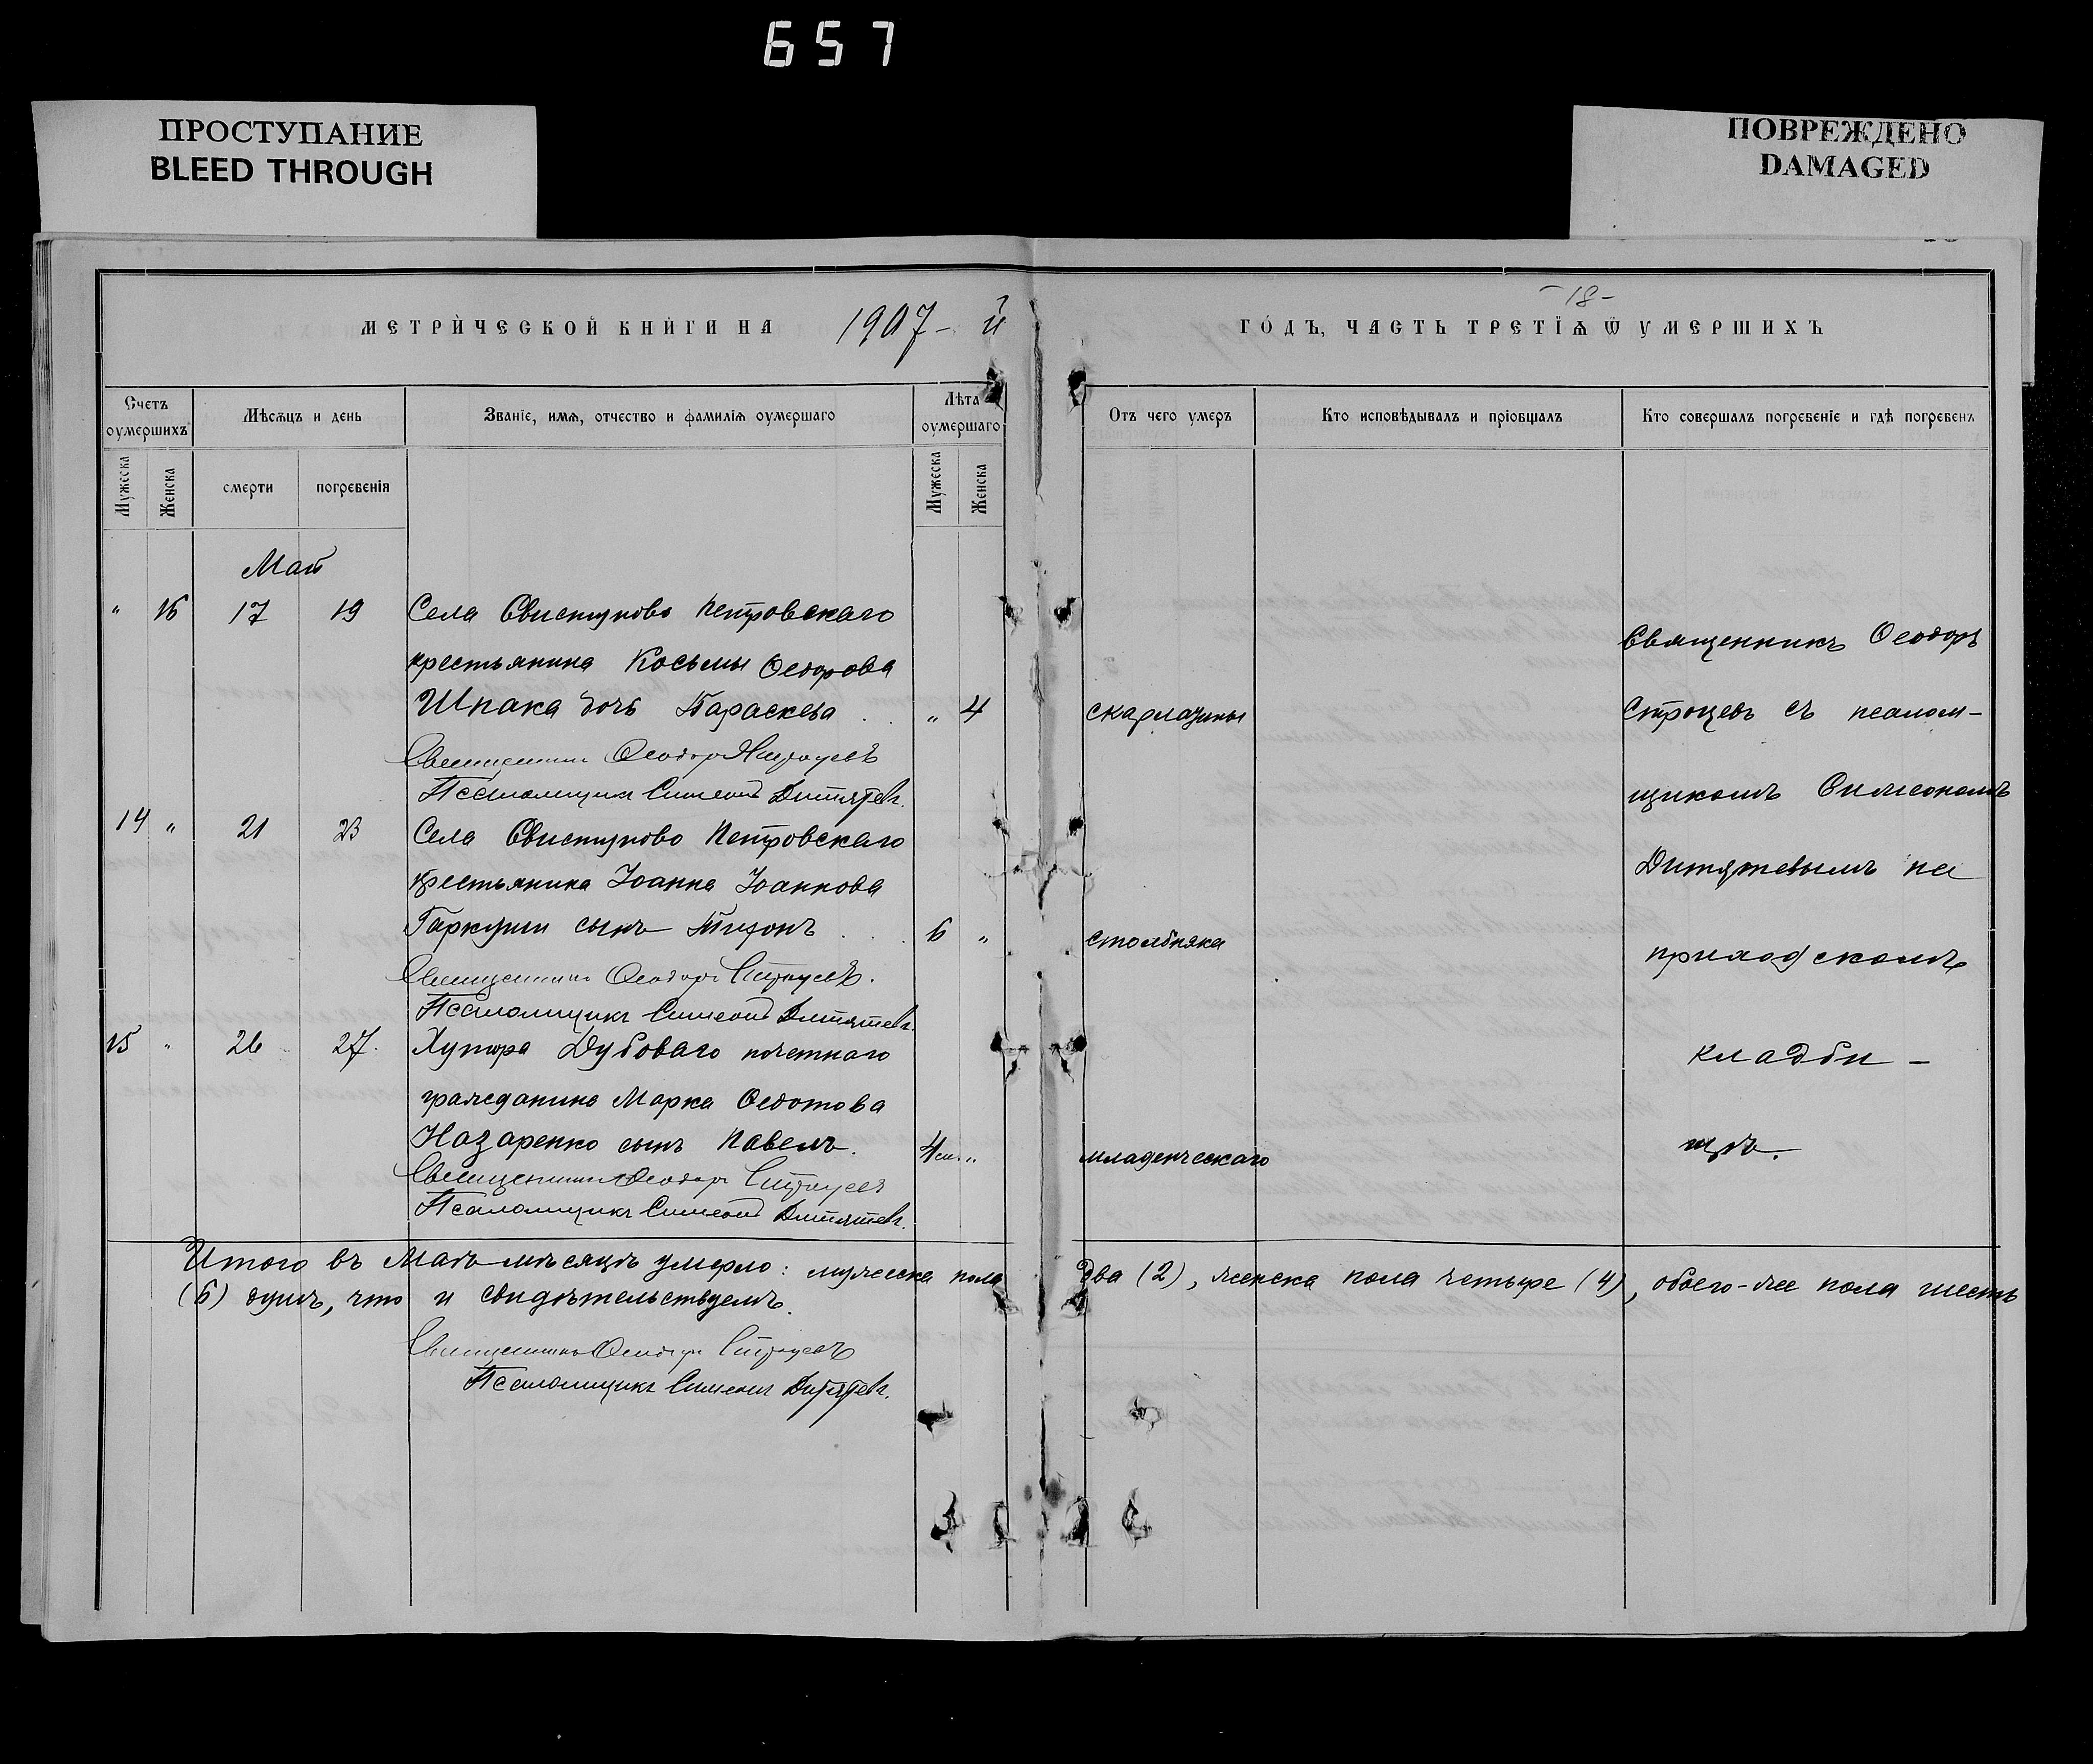 657
ПРОСТУПАНИЕ
BLEED THROUGH
ПОВРЕЖДЕНО
DAMAGED
-18-
МЕТРИЧЕСКОЙ КНИГИ НА 1907-й ГОДЪ, ЧАСТЬ ТРЕТІЯ Ѿ УМЕРШИХЪ
Счетъ оумершихъ
Мѣсяцъ и день
Званіе, имя, отчество и фамилія оумершаго
Лѣта оумершаго
Отъ чего умеръ
Кто исповѣдывалъ и пріобщалъ
Кто совершалъ погребеніе и гдѣ погребенъ
Мужеска
Женска
смерти
погребенія
Мужеска
Женска
Май
" 16 17 19 Села Свистуново Петровскаго
крестьянина Косьмы Ѳеодорова
Шпака дочь Параскева . . " 4 скарлатины
Священникъ Ѳеодоръ Строцевъ
Псаломщикъ Симеонъ Дитятевъ.
14 " 21 23 Села Свистуново Петровскаго
крестьянина Іоанна Іоаннова
Гаркуши сынъ Тихонъ . . . 6 " столбняка
Священникъ Ѳеодоръ Строцевъ.
Псаломщикъ Симеонъ Дитятевъ.
15 " 26 27. Хутора Дубоваго почетнаго
гражданина Марка Ѳедотова
Назаренко сынъ Павелъ. 4 " младенческаго
Священникъ Ѳеодоръ Строцевъ
Псаломщикъ Симеонъ Дитятевъ.
Священникъ Ѳеодоръ
Строцевъ съ псалом-
щикомъ Симеономъ
Дитятевымъ на
приходскомъ
кладби-
щѣ.
Итого въ Маѣ мѣсяцѣ умерло: мужеска пола два (2), женска пола четыре (4), обоего-же пола шесть
(6) душъ, что и свидѣтельствуемъ.
Священникъ Ѳеодоръ Строцевъ
Псаломщикъ Симеонъ Дитятевъ.